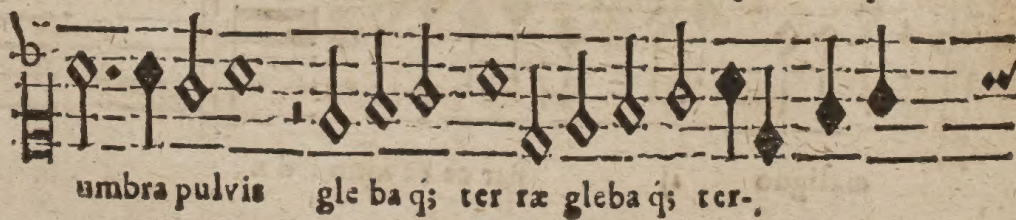 umbra pulvis gle ba q́; ter ræ gleba q́; ter-